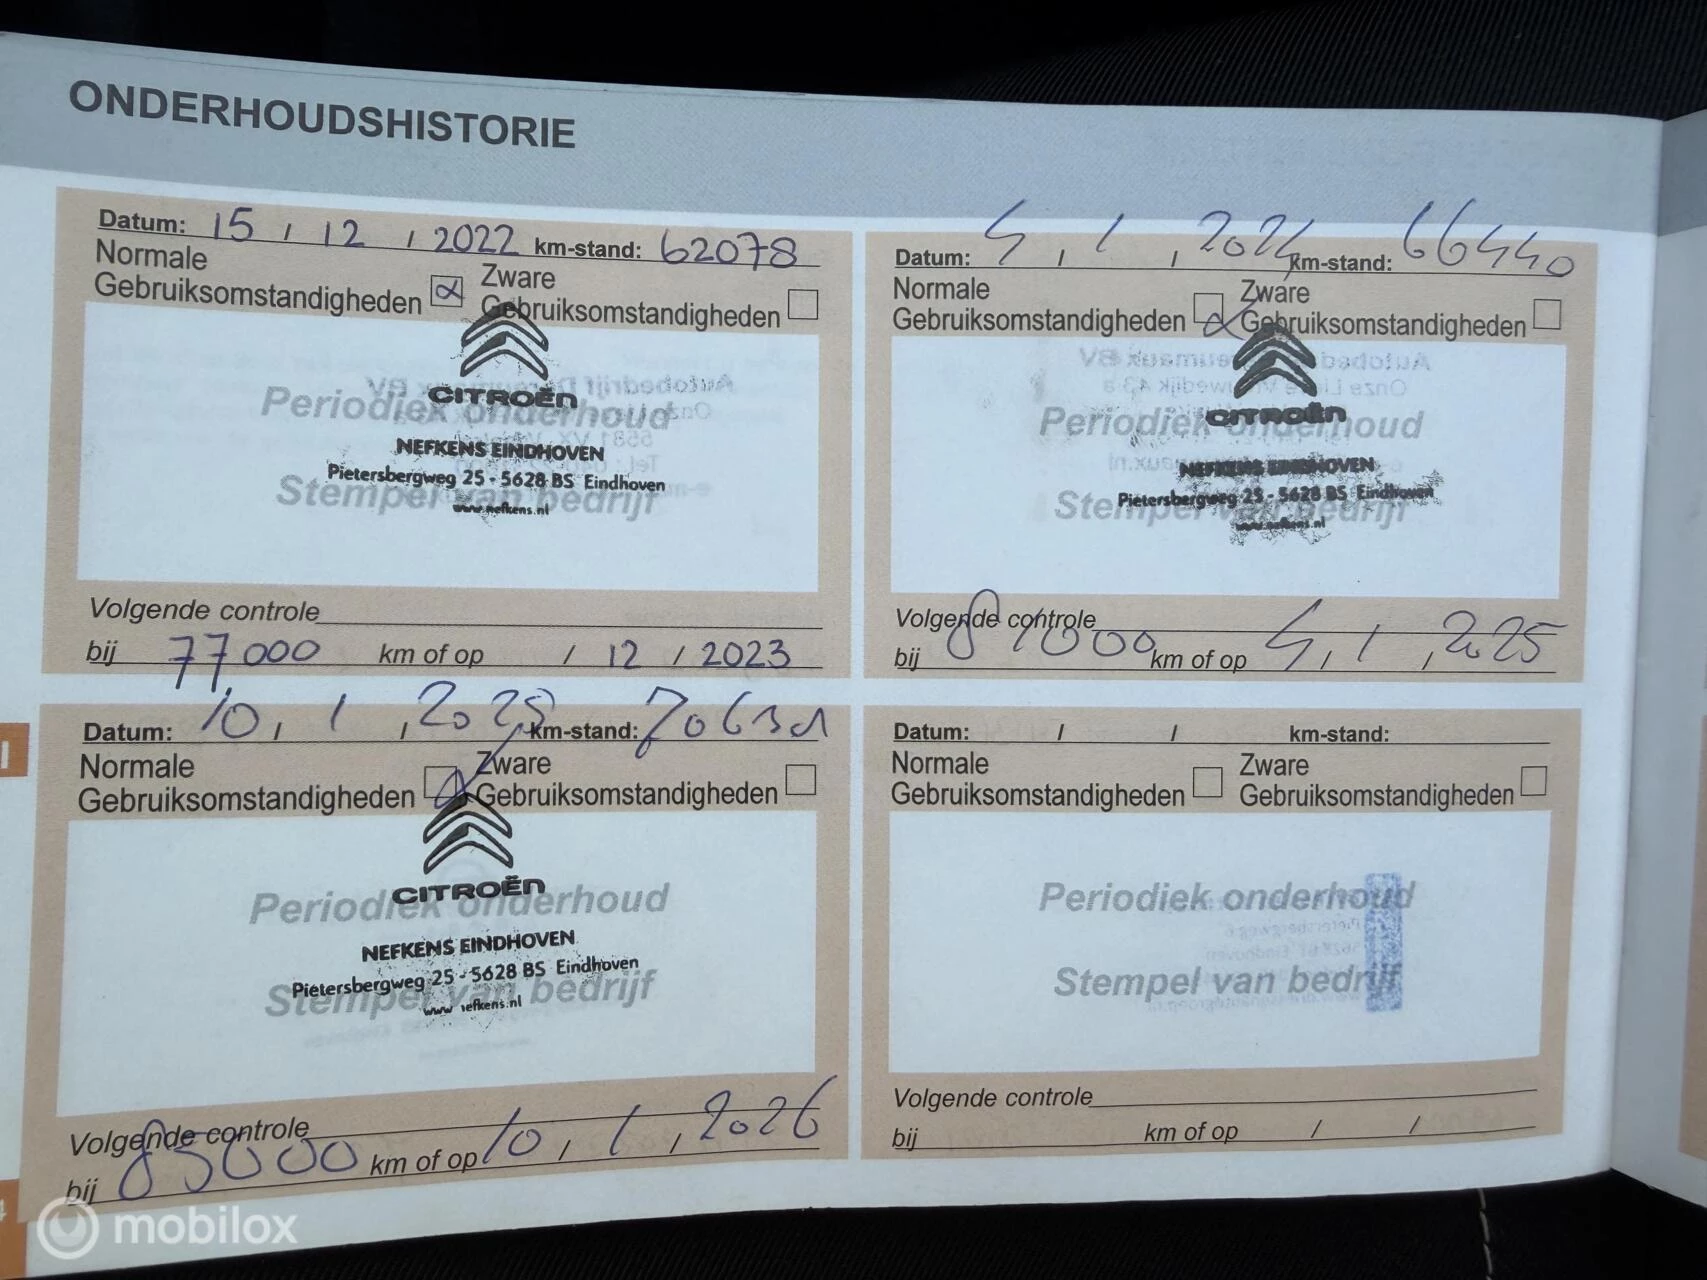 ONDERHOUDSHISTORIE
Datum: 15 / 12 / 2022 km-stand: 62078
Normale
Gebruiksomstandigheden
Zware
Gebruiksomstandigheden
Periodiek onderhoud
Stempel van bedrijf
CITROËN
NEFKENS EINDHOVEN
Pietersbergweg 25 - 5628 BS Eindhoven
www.nefkens.nl
Volgende controle
bij 77.000 km of op / 12 / 2023
Datum: 4 / 1 / 2024 km-stand: 66440
Normale
Gebruiksomstandigheden
Zware
Gebruiksomstandigheden
Periodiek onderhoud
Stempel van bedrijf
CITROËN
NEFKENS EINDHOVEN
Pietersbergweg 25 - 5628 BS Eindhoven
www.nefkens.nl
Volgende controle
bij 81000 km of op 4 / 1 / 2025
Datum: 10 / 1 / 2025 km-stand:
Normale
Gebruiksomstandigheden
Zware
Gebruiksomstandigheden
Periodiek onderhoud
Stempel van bedrijf
CITROËN
NEFKENS EINDHOVEN
Pietersbergweg 25 - 5628 BS Eindhoven
www.nefkens.nl
Volgende controle
bij 85000 km of op 10 / 1 / 2026
Datum: / / km-stand:
Normale
Gebruiksomstandigheden
Zware
Gebruiksomstandigheden
Periodiek onderhoud
Stempel van bedrijf
Volgende controle
bij km of op / /
mobilox